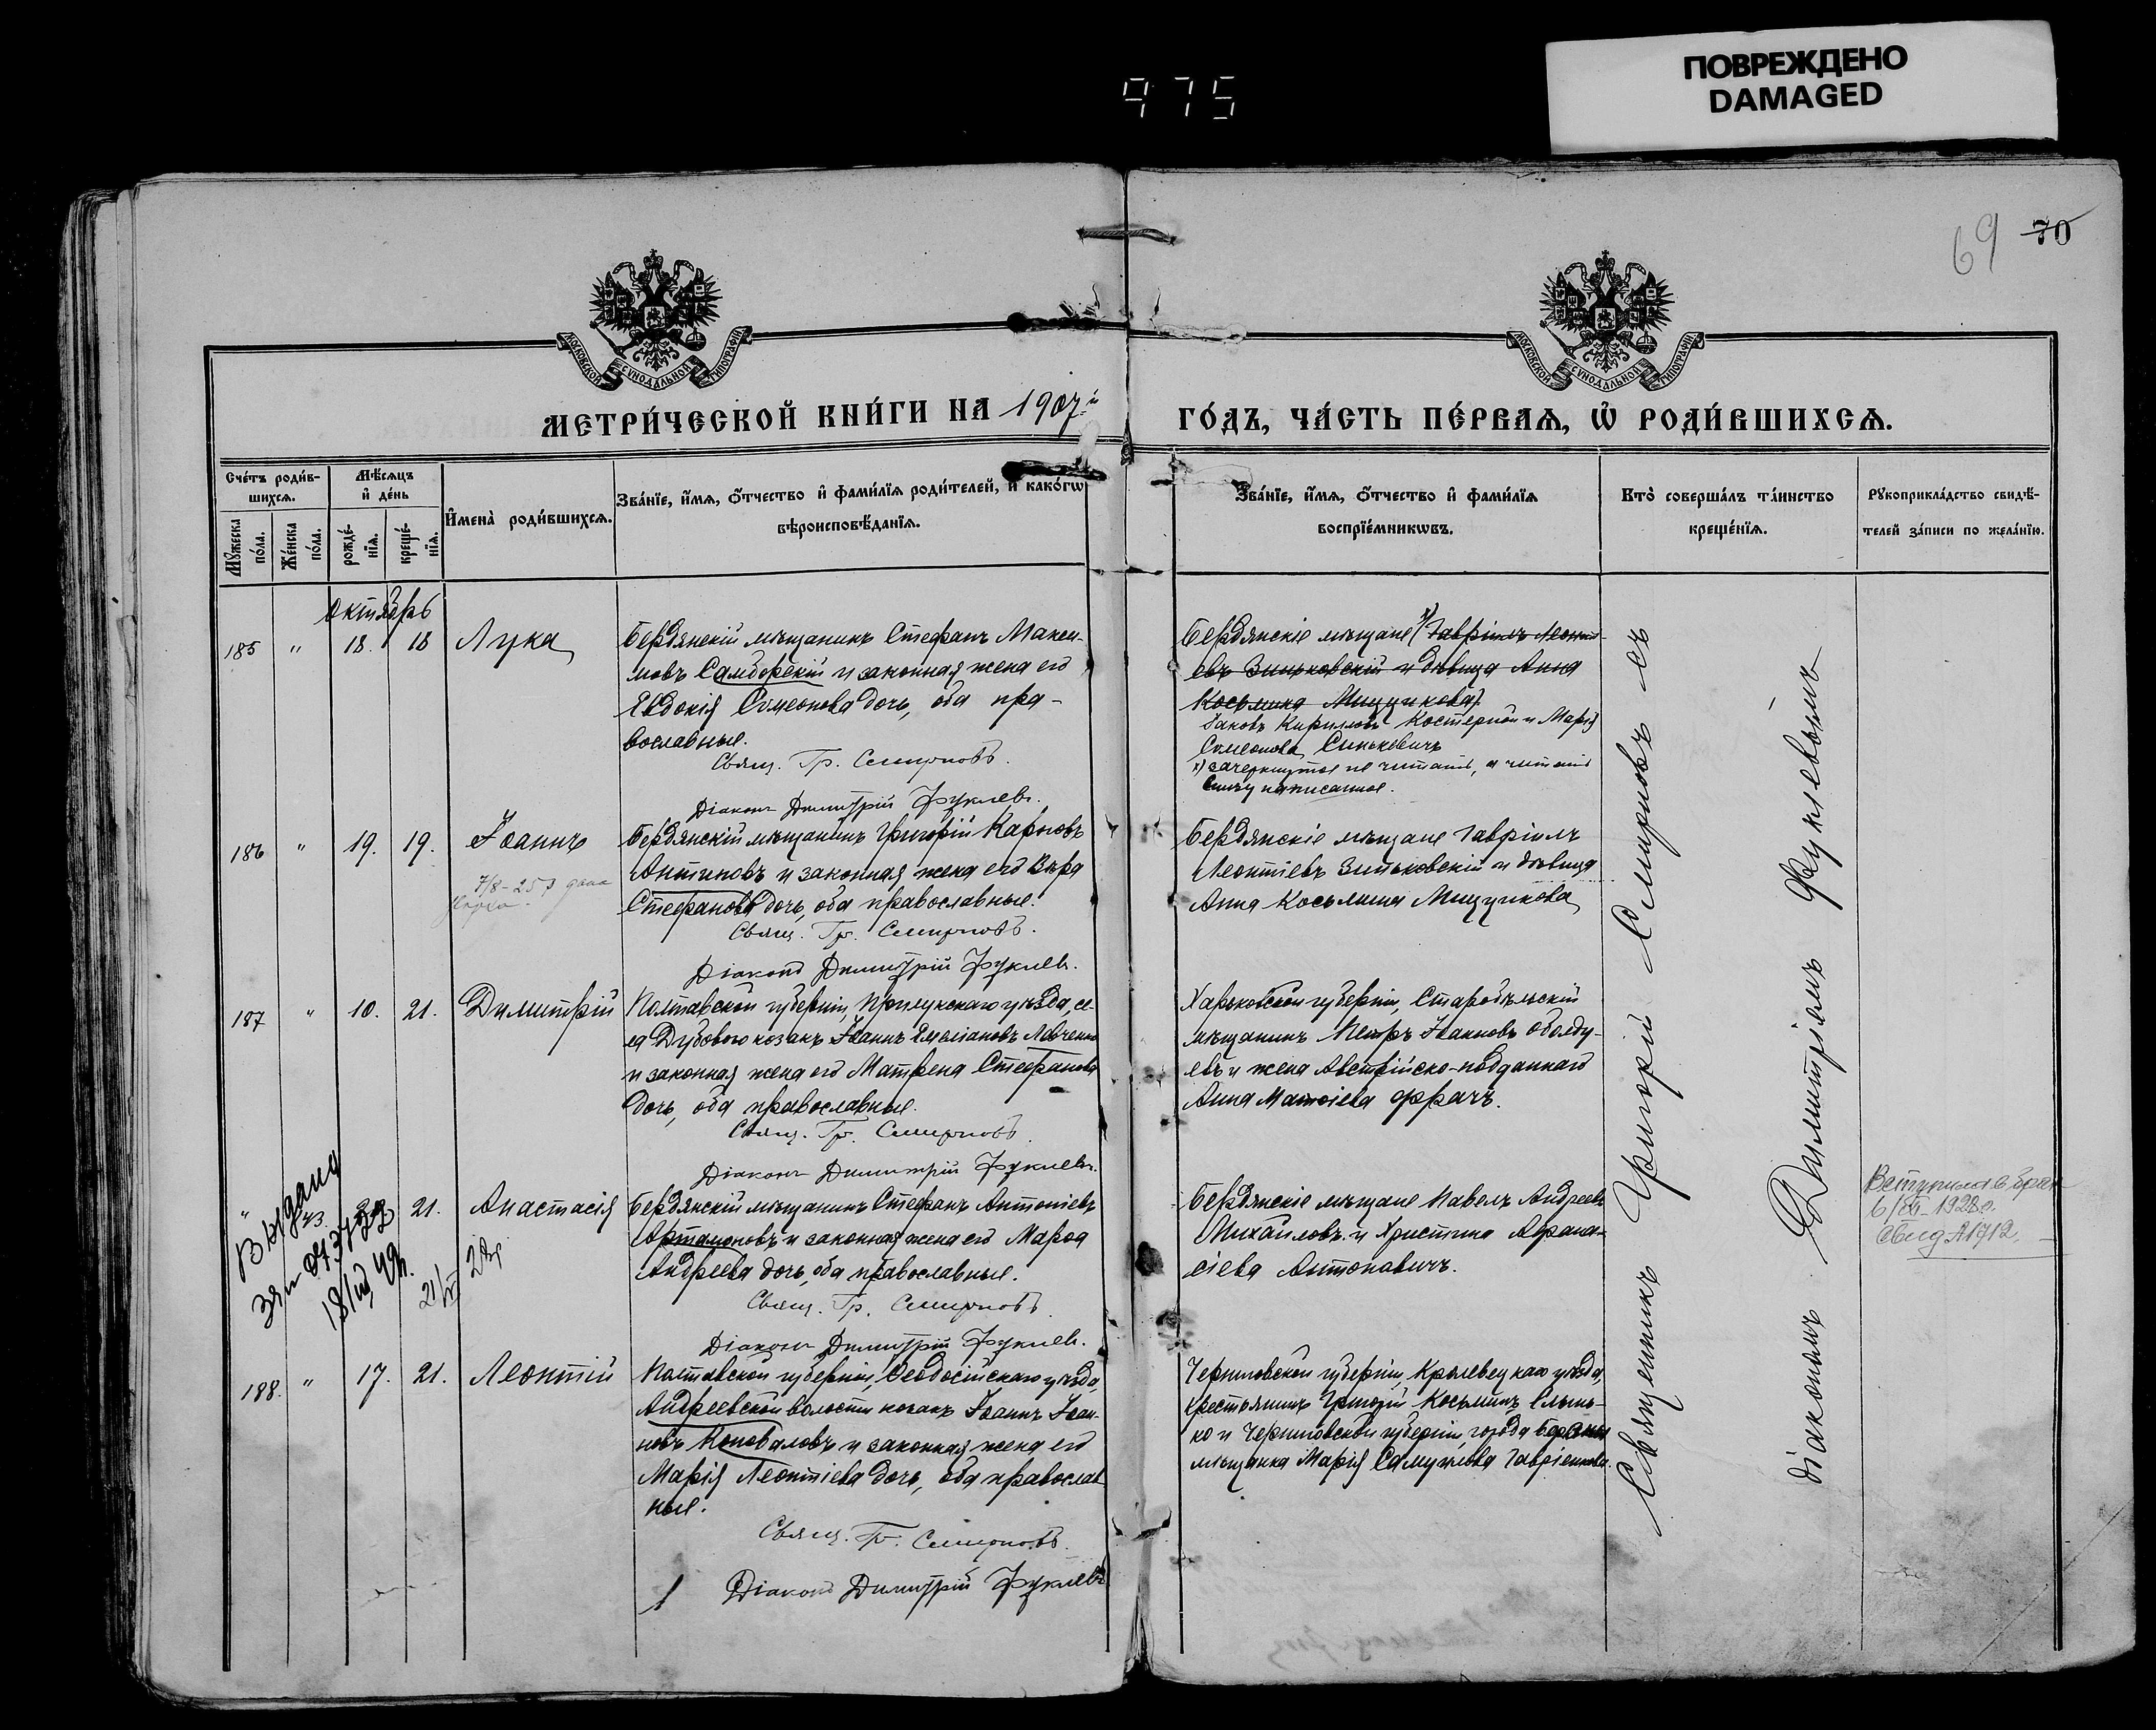 ПОВРЕЖДЕНО
DAMAGED
975
69 70
МОСКОВСКОЙ СУНОДАЛЬНОЙ ТИПОГРАФІИ
МОСКОВСКОЙ СУНОДАЛЬНОЙ ТИПОГРАФІИ
МЕТРИ́ЧЕСКОЙ КНИ́ГИ НА 1907й
ГО́ДЪ, ЧА́СТЬ ПЕ́РВАѦ, Ѡ҆ РОДИ́ВШИХСѦ.
Сче́тъ роди́в-
шихсѧ.
Мꙋ́жеска по́ла.
Же́нска по́ла.
Мѣ́сѧцъ
и҆ де́нь
рожде́-
нїѧ.
креще́-
нїѧ.
И҆мена̀ роди́вшихсѧ.
Зва́нїе, и҆́мѧ, ѻ҆́тчество и҆ фами́лїѧ роди́телей, и҆ како́гѡ
вѣроисповѣ́данїѧ.
Зва́нїе, и҆́мѧ, ѻ҆́тчество и҆ фами́лїѧ
воспрїе́мникѡвъ.
Кто̀ соверша́лъ та́инство
креще́нїѧ.
Рꙋкоприкла́дство свидѣ́-
телей за́писи по жела́нїю.
Октябрь
185 " 18. 18 Лука
Бердянскій мѣщанинъ Стефанъ Макси-
мовъ Самборскій и законная жена его
Евдокія Симеонова дочь, оба пра-
вославные.
Свящ. Гр. Смирновъ.
Діаконъ Димитрій Фуклевъ.
Бердянскіе мѣщане х) Гавріилъ Леонті-
евъ Зиньковскій и дѣвица Анна
Косьмина Мищикова
Іаковъ Кирилловъ Костерной и Марія
Симеонова Синькевичъ
х) зачеркнутое не читать, а читать
снизу написанное.
186 " 19. 19. Іоаннъ
7/8-25 г дана
Бердянскій мѣщанинъ Григорій Карповъ
Антиповъ и законная жена его Вѣра
Стефанова дочь, оба православные.
Свящ. Гр. Смирновъ.
Діаконъ Димитрій Фуклевъ.
Бердянскіе мѣщане Гавріилъ
Леонтіевъ Зиньковскій и дѣвица
Анна Косьмина Мищикова
187 " 10. 21. Димитрій
Полтавской губерніи, Прилукскаго уѣзда, се-
ла Дубового козакъ Іоаннъ Емеліановъ Левченко
и законная жена его Матрена Стефанова
дочь, оба православные.
Свящ. Гр. Смирновъ.
Діаконъ Димитрій Фуклевъ.
Харьковской губерніи, Старобѣльскій
мѣщанинъ Петръ Іоанновъ Оболду-
евъ и жена Австрійско-подданнаго
Анна Матѳіева Фрачъ.
" 21. Анастасія
Выдана
Бердянскій мѣщанинъ Стефанъ Антоніевъ
Артамоновъ и законная жена его Марѳа
Андреева дочь, оба православные.
Свящ. Гр. Смирновъ
Діаконъ Димитрій Фуклевъ.
Бердянскіе мѣщане Павелъ Андреевъ
Михайловъ и Христина Аѳана-
сіева Антоновичъ.
Вступила в брак
1928 г.
Свид. 1712
188. " 17. 21. Леонтій
Полтавской губерніи, Ѳеодосійскаго уѣзда,
Андреевской волости козакъ Іоаннъ Іоан-
новъ Коноваловъ и законная жена его
Марія Леонтіева дочь, оба православ
ные.
Свящ. Гр. Смирновъ.
Діаконъ Димитрій Фуклевъ
Черниговской губерніи, Кролевецкаго уѣзда,
крестьянинъ Григорій Косьминъ Слынь-
ко и Черниговской губерніи, города Борзны
мѣщанка Марія Самуилова Гавріенкова.
Священникъ Григорій Смирновъ съ
діакономъ Димитріемъ Фуклевымъ